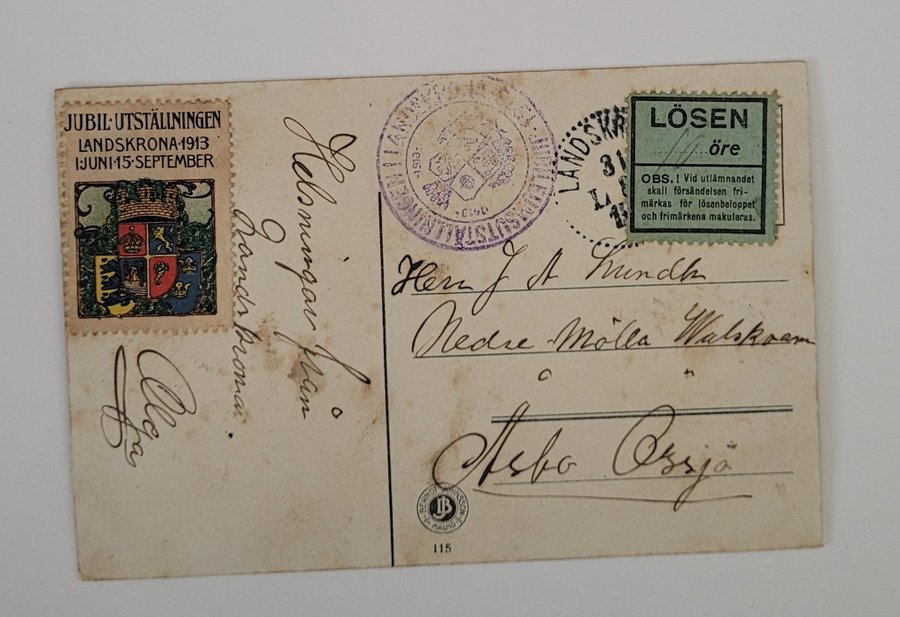 JUBIL·UTSTÄLLNINGEN
LANDSKRONA·1913
1·JUNI·15·SEPTEMBER
Helsningar från
Landskrona.
Olga
·1913·
·1913·
LANDSKR
31
L.
LÖSEN
öre
OBS.! Vid utlämnandet
skall försändelsen fri-
märkas för lösenbeloppet
och frimärkena makuleras.
Herr J A Lundh
Nedre Mölla Walskvarn
Åsbo Össjö
BERNDT JOHNSSON
JB
MALMÖ
115